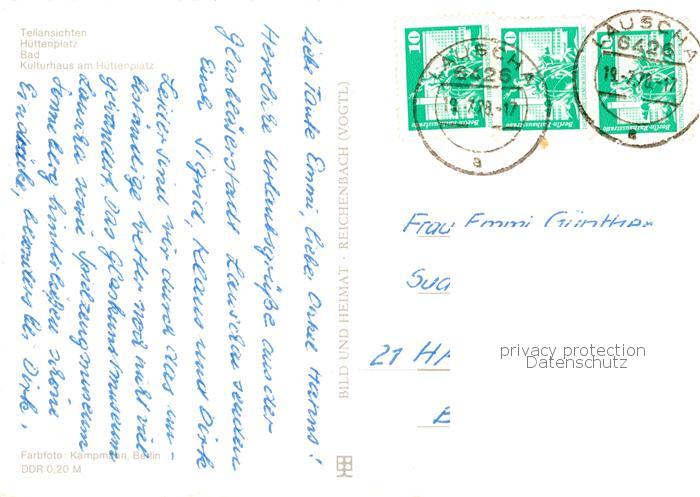 Teilansichten
Hüttenplatz
Bad
Kulturhaus am Hüttenplatz
Liebe Tante Emmi, liebe Onkel Hanns!
Herzliche Urlaubsgrüße aus der
Glasbläserstadt Lauscha senden
Euch Sigrid, Klaus und Dirk
Leider sind wir durch das un-
beständige Wetter noch nicht viel
gewandert. Das Glaskunstmuseum
Lauscha sowie Spielzeugmuseum
Sonneberg hinterließen schöne
Eindrücke, besonders bei Dirk.
Farbfoto: Kampmann, Berlin
DDR 0,20 M
BILD UND HEIMAT · REICHENBACH (VOGTL)
10
10
Berlin-Rathausstraße
Berlin-Rathausstraße
Berlin-Rathausstraße
LAUSCHA
6426
19.-7.78.-17
a
LAUSCHA
6426
19.-7.78.-17
a
Frau Emmi Günther
21 HA
privacy protection
Datenschutz